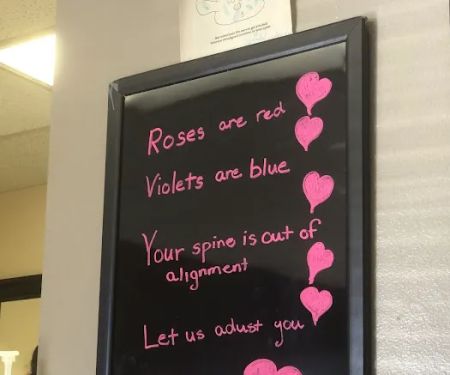 Roses are red
Violets are blue
Your spine is out of
alignment
Let us adust you